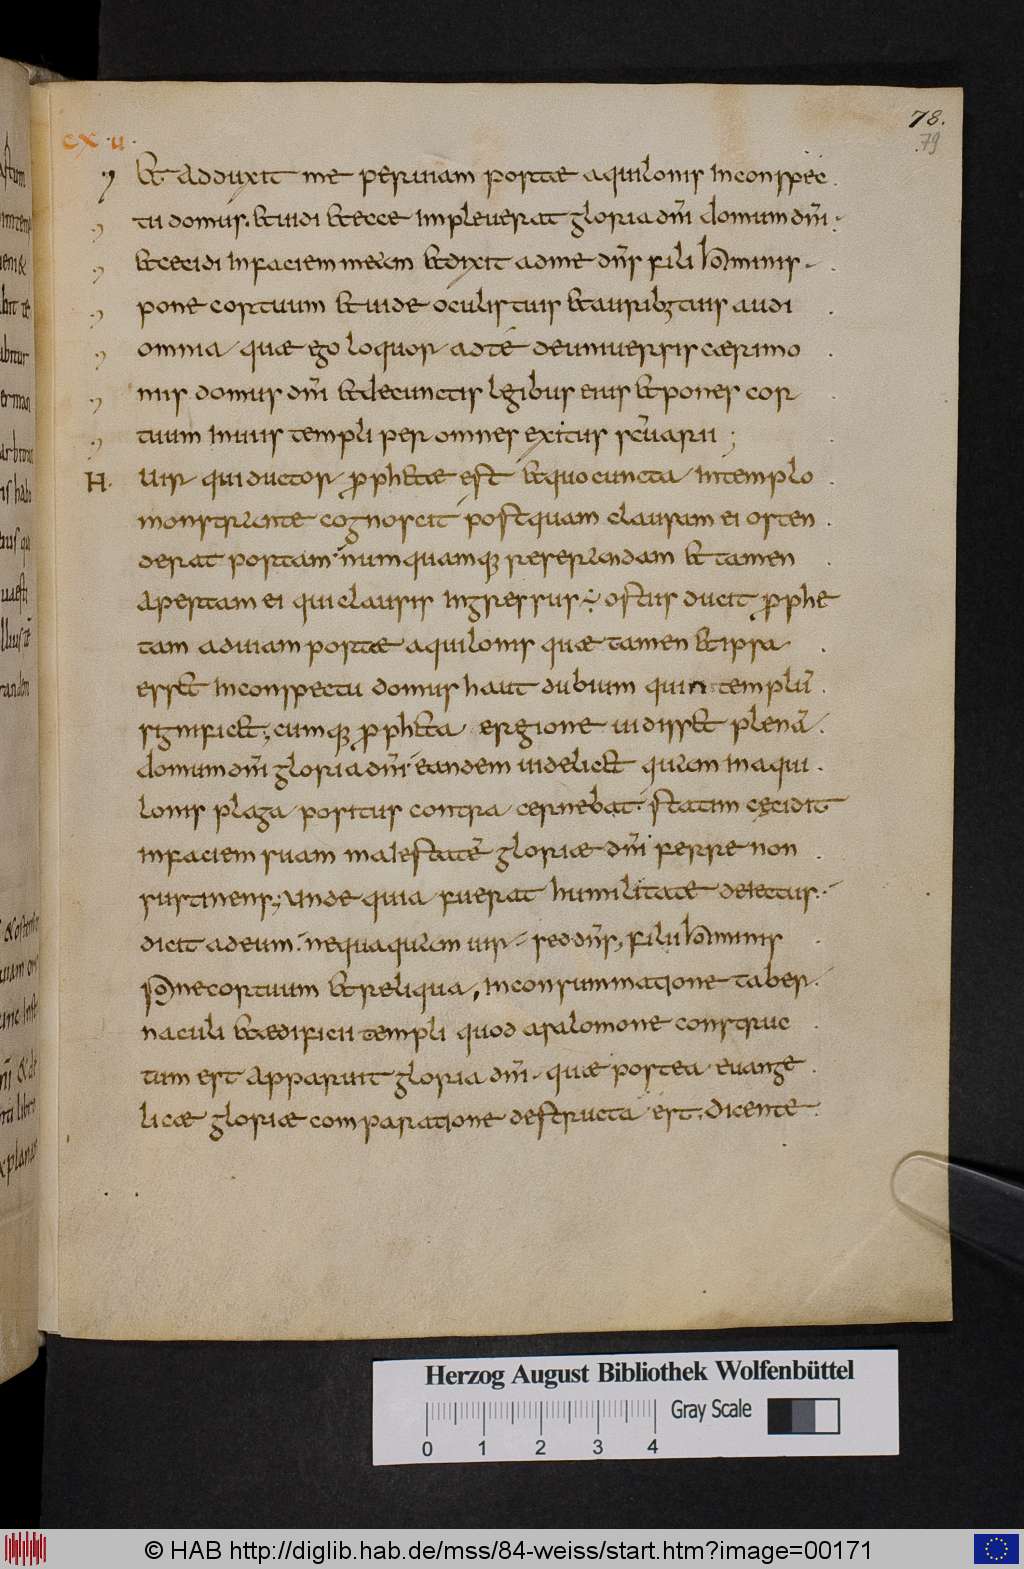 78.
79
cx·u·
Et adduxit me per uiam portae aquilonis in conspec
tu domus. et uidi et ecce impleuerat gloria dñi domum dñi·
et cecidi in faciem meam et dixit ad me dñs fili hominis·
pone cor tuum et uide oculis tuis et auribꝫ tuis audi
omnia quae ego loquor ad té de uniuersis caerimo
niis domus dñi et de cunctis legibus eius et pones cor
tuum in uiis templi per omnes exitus sc̄uarii ;
H. Uir qui ductor prophetae est et quo cuncta in templo
monstrante cognoscit postquam clausam ei osten
derat portam· numquamqꝫ reserandam et tamen
apertam ei qui clausis ingressus ÷ ostiis ducit prophe
tam ad uiam portae aquilonis quae tamen et ipsa
esset in conspectu domus haut dubium quin templū
significet; cumqꝫ propheta e regione uidisset plenā
domum dñi gloria dñi· eandem uidelicet quam in aqui
lonis plaga positus contra cernebat· statim cecidit
in faciem suam maiestatē gloriae dñi ferre non
sustinens; unde quia fuerat humilitate deiectus·
dicit ad eum· nequaquam uir· sed dñs, fili hominis
pone cor tuum et reliqua, in consummatione taber
naculi et aedificii templi quod a salomone construc
tum est apparuit gloria dñi· quae postea euange
licae gloriae comparatione destructa est· dicente
Herzog August Bibliothek Wolfenbüttel
Gray Scale
0 1 2 3 4
© HAB http://diglib.hab.de/mss/84-weiss/start.htm?image=00171